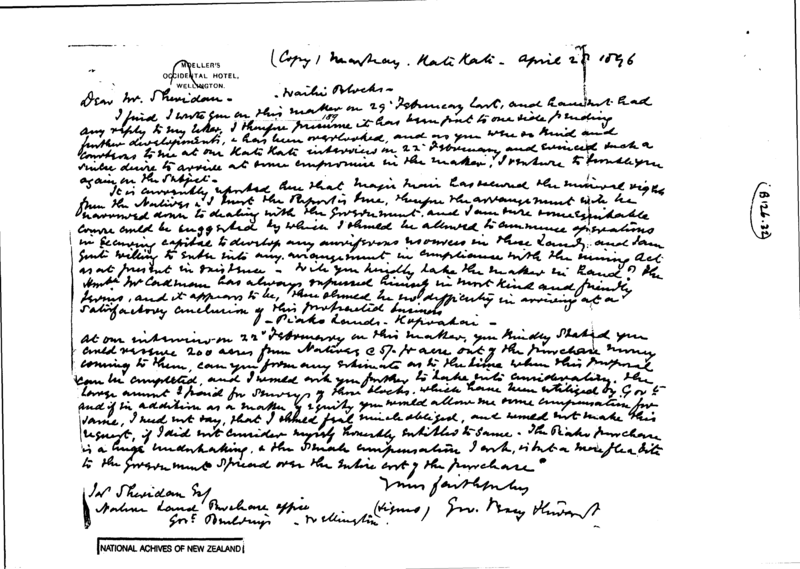 (Copy) Kati Kati - April 2 1896
MOELLER'S
OCCIDENTAL HOTEL,
WELLINGTON.
Dear Mr. Sheridan - Waihi Blocks -
I find I wrote you on this matter on 29 February last, and have not had
any reply to my letter, I therefore presume it has been put to one side pending
189
further developments, or has been overlooked, and as you were so kind and
courteous to me at our Kati Kati interview on 22 February and evinced such a
desire to arrive at some compromise in the matter, I venture to trouble you
again on the subject -
It is currently reported here that Major Mair has secured the mineral rights
from the Natives & I trust the Report is true, therefore the arrangement will be
narrowed down to dealing with the Government, and I am sure some equitable
course could be suggested by which I should be allowed to commence operations
in securing capital to develop any auriferous resources in these Lands, and I am
quite willing to enter into any arrangement in compliance with the Mining Act
as at present in existence - Will you kindly take the matter in hand? The
Honble Mr Cadman has always expressed himself in most kind and friendly
terms, and it appears to be, there should be no difficulty in arriving at a
satisfactory conclusion of this protracted business
- Piako Lands - Hopuakai -
At our interview on 22 February on this matter, you kindly stated you
could reserve 200 acres from Natives @ 5/- pr acre out of the purchase money
coming to them, can you form any estimate as to the time when this proposal
can be completed, and I would ask you further to take into consideration the
large amount I paid for surveys of these blocks, which have been utilized by Govt
and if in addition as a matter of equity you would allow me some compensation for
same, I need not say, that I should feel much obliged, and would not make this
request, if I did not consider myself honestly entitled to same. The Piako purchase
is a huge undertaking, & the small compensation I ask, is but a mere flea bite
to the Government spread over the entire cost of the purchase"
Yours faithfully
(signed) Geo. Vesey Stewart
Sheridan Esq
Native Land Purchase Office
Govt. Buildings - Wellington
NATIONAL ACHIVES OF NEW ZEALAND
B126.22